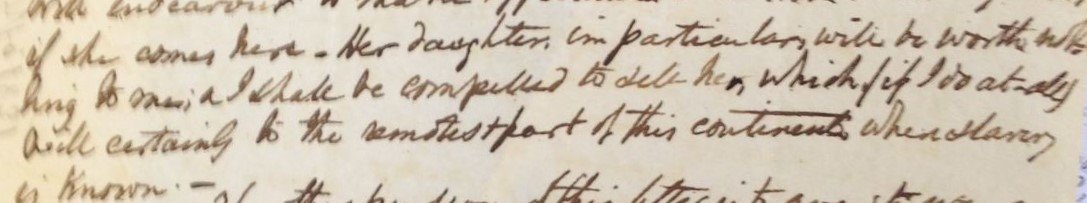 will endeavour to make
if she comes here - Her daughter, in particular, will be worth noth-
hing to me; & I shall be compelled to sell her, which (if I do at all)
will certainly be to the remotest part of this continent where slavery
is known. -
of this letter